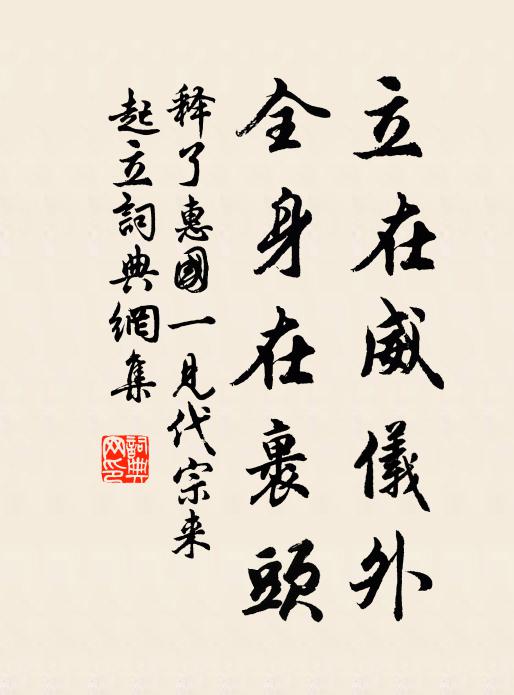 立在威儀外
全身在裹頭
释了惠國一見代宗来
起立詞典網集
詞典
网印